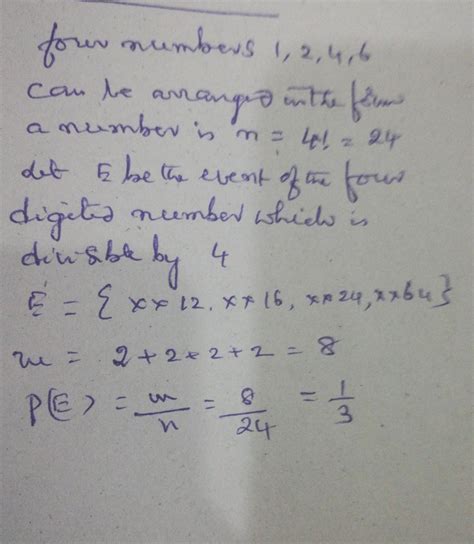 four numbers 1, 2, 4, 6
can be arranged in the form
a number is n = 4! = 24
let E be the event of the four
digited number which is
divisible by 4
E = { xx12, xx16, xx24, xx64}
m = 2+2+2+2 = 8
P(E) = m/n = 8/24 = 1/3